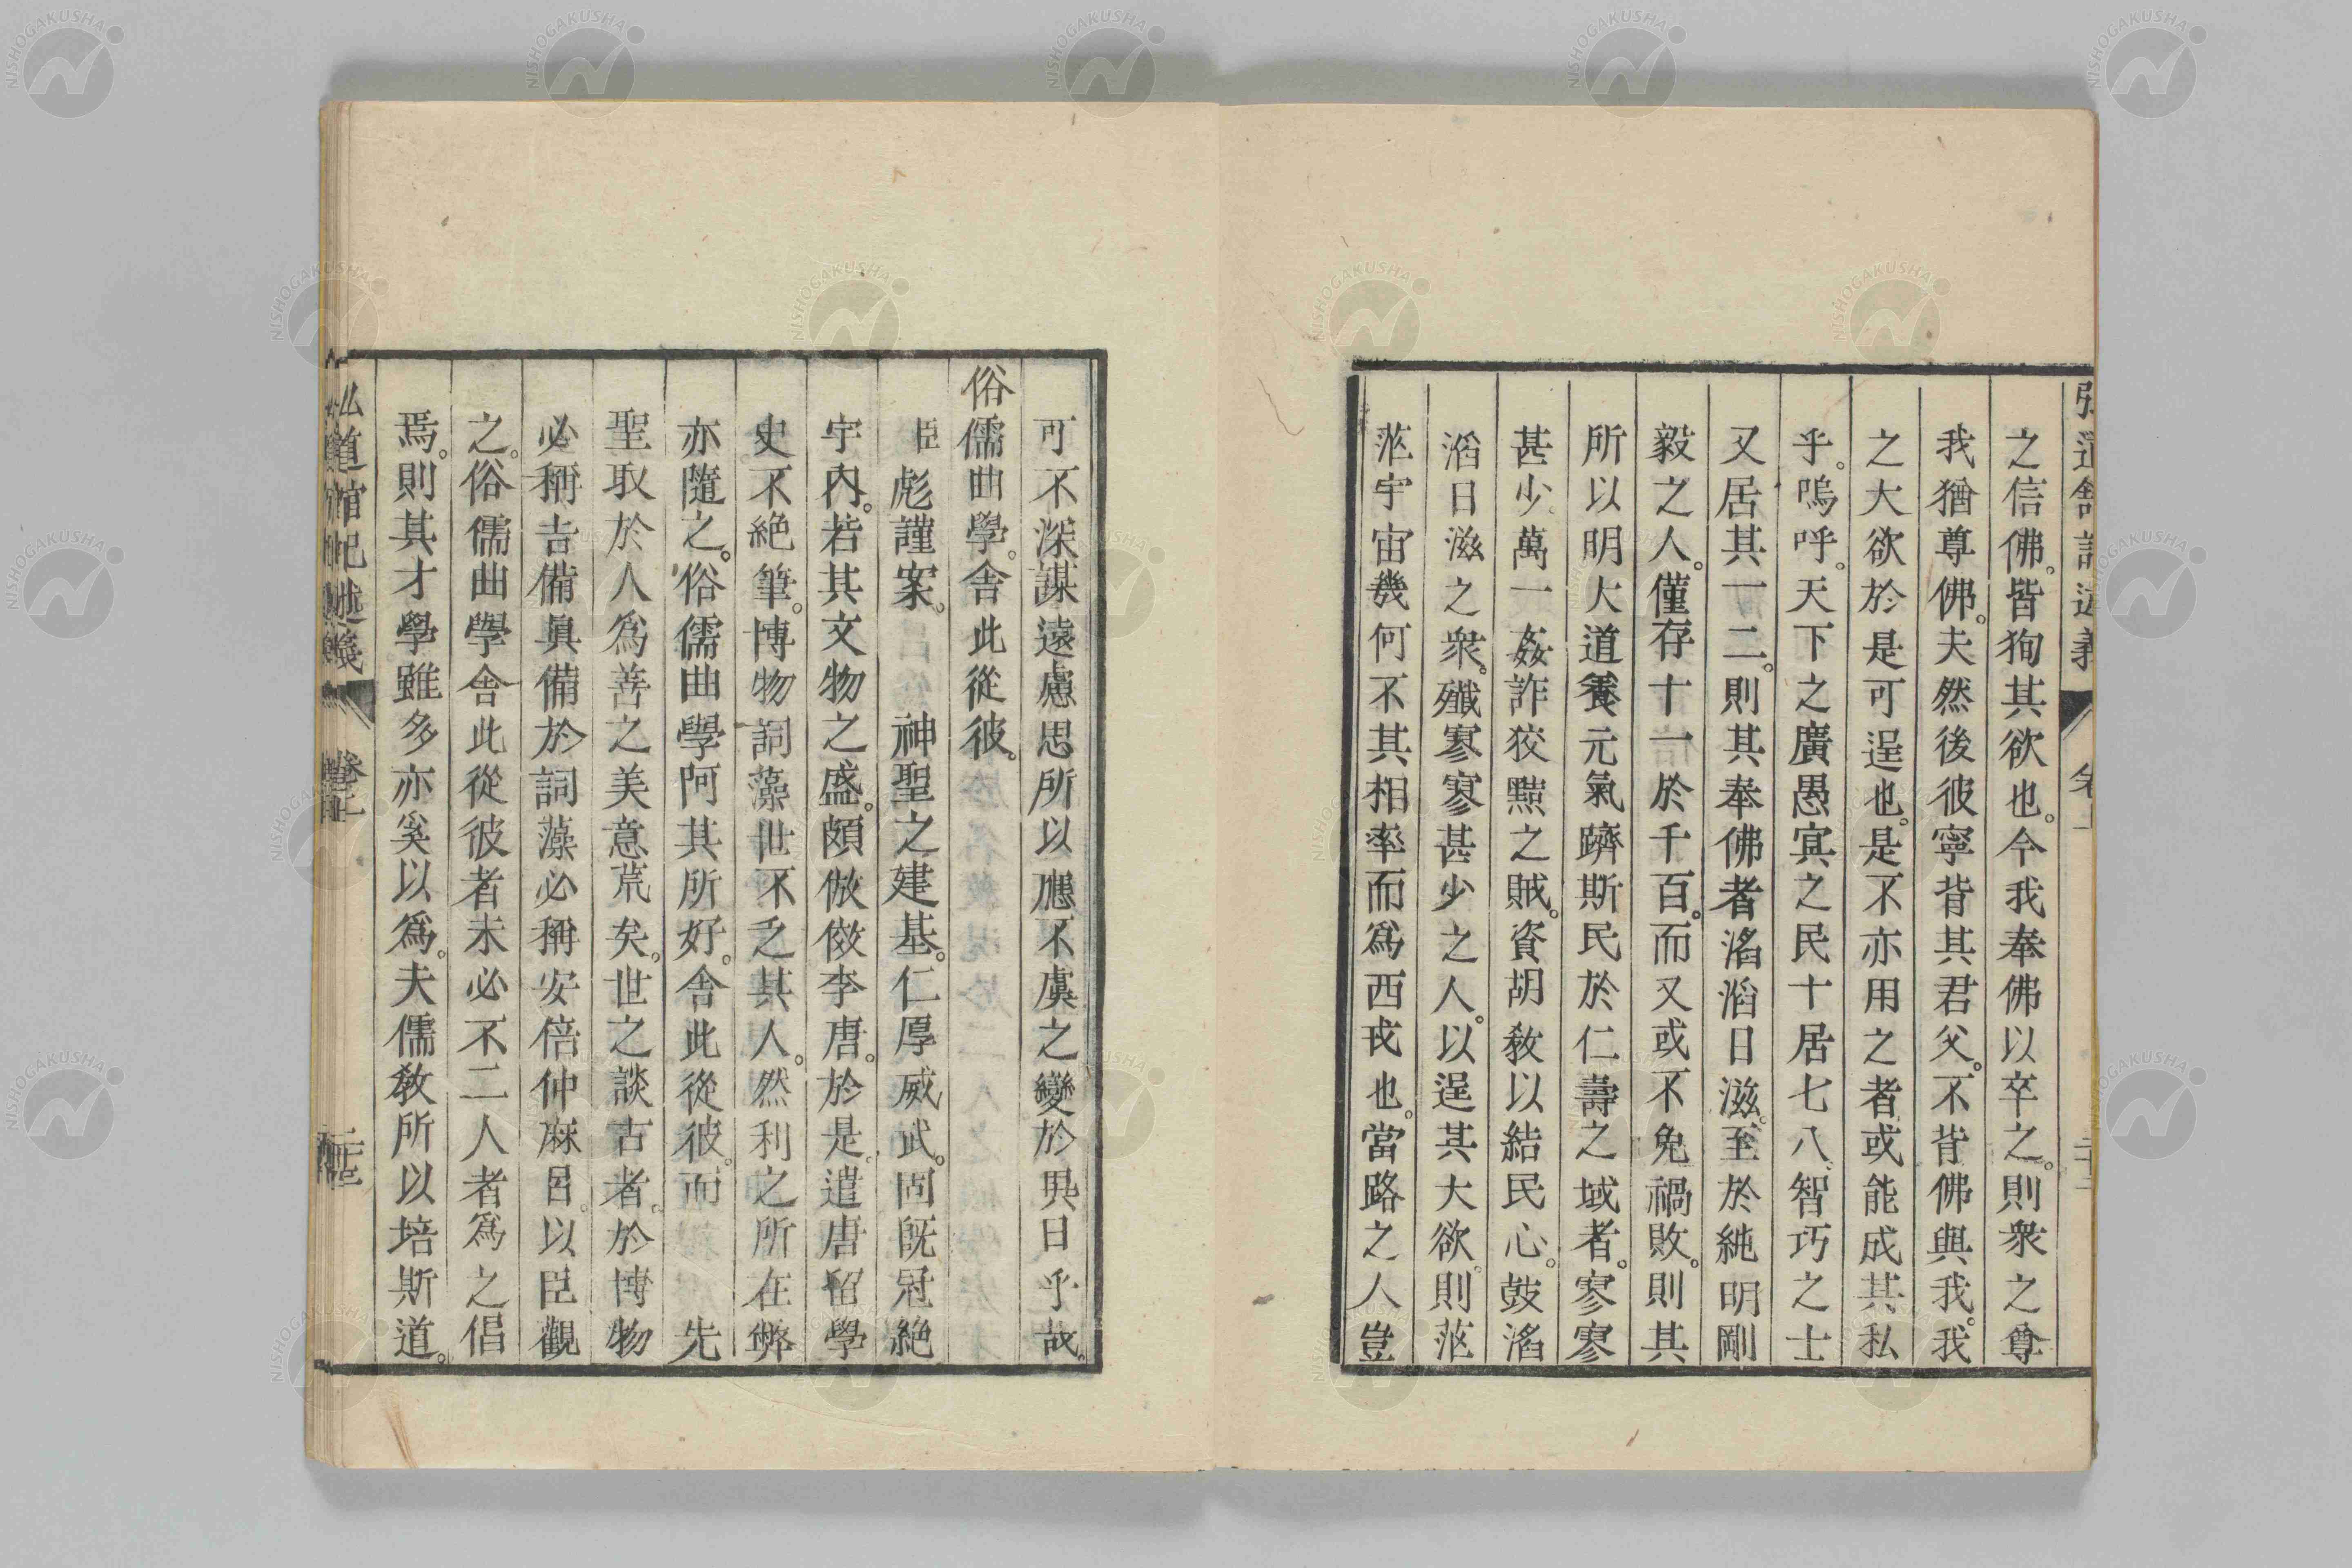 之信佛。皆狥其欲也。今我奉佛以卒之。則衆之尊
我猶尊佛。夫然後彼寧背其君父。不背佛與我。我
之大欲於是可逞也。是不亦用之者或能成其私
乎。嗚呼。天下之廣愚冥之民十居七八、智巧之士
又居其一二。則其奉佛者滔滔日滋。至於純明剛
毅之人。僅存十一於千百。而又或不免禍敗。則其
所以明大道養元氣躋斯民於仁壽之域者。寥寥
甚少。萬一姦詐狡黠之賊。資胡敎以結民心。鼓滔
滔日滋之衆。殲寥寥甚少之人。以逞其大欲。則茫
茫宇宙幾何不其相率而爲西戎也。當路之人豈
可不深謀遠慮思所以應不虞之變於異日乎故。
俗儒曲學。舍此從彼。
臣彪謹案。神聖之建基。仁厚威武。固旣冠絶
宇內。若其文物之盛。頗倣傚李唐。於是。遣唐留學
史不絶筆。博物詞藻世不乏其人。然利之所在弊
亦隨之。俗儒曲學阿其所好。舍此從彼。而先
聖取於人爲善之美意荒矣。世之談古者。於博物
必稱吉備眞備於詞藻必稱安倍仲麻呂。以臣觀
之。俗儒曲學舍此從彼者未必不二人者爲之倡
焉。則其才學雖多亦奚以爲。夫儒敎所以培斯道。
弘道館記述義 卷上